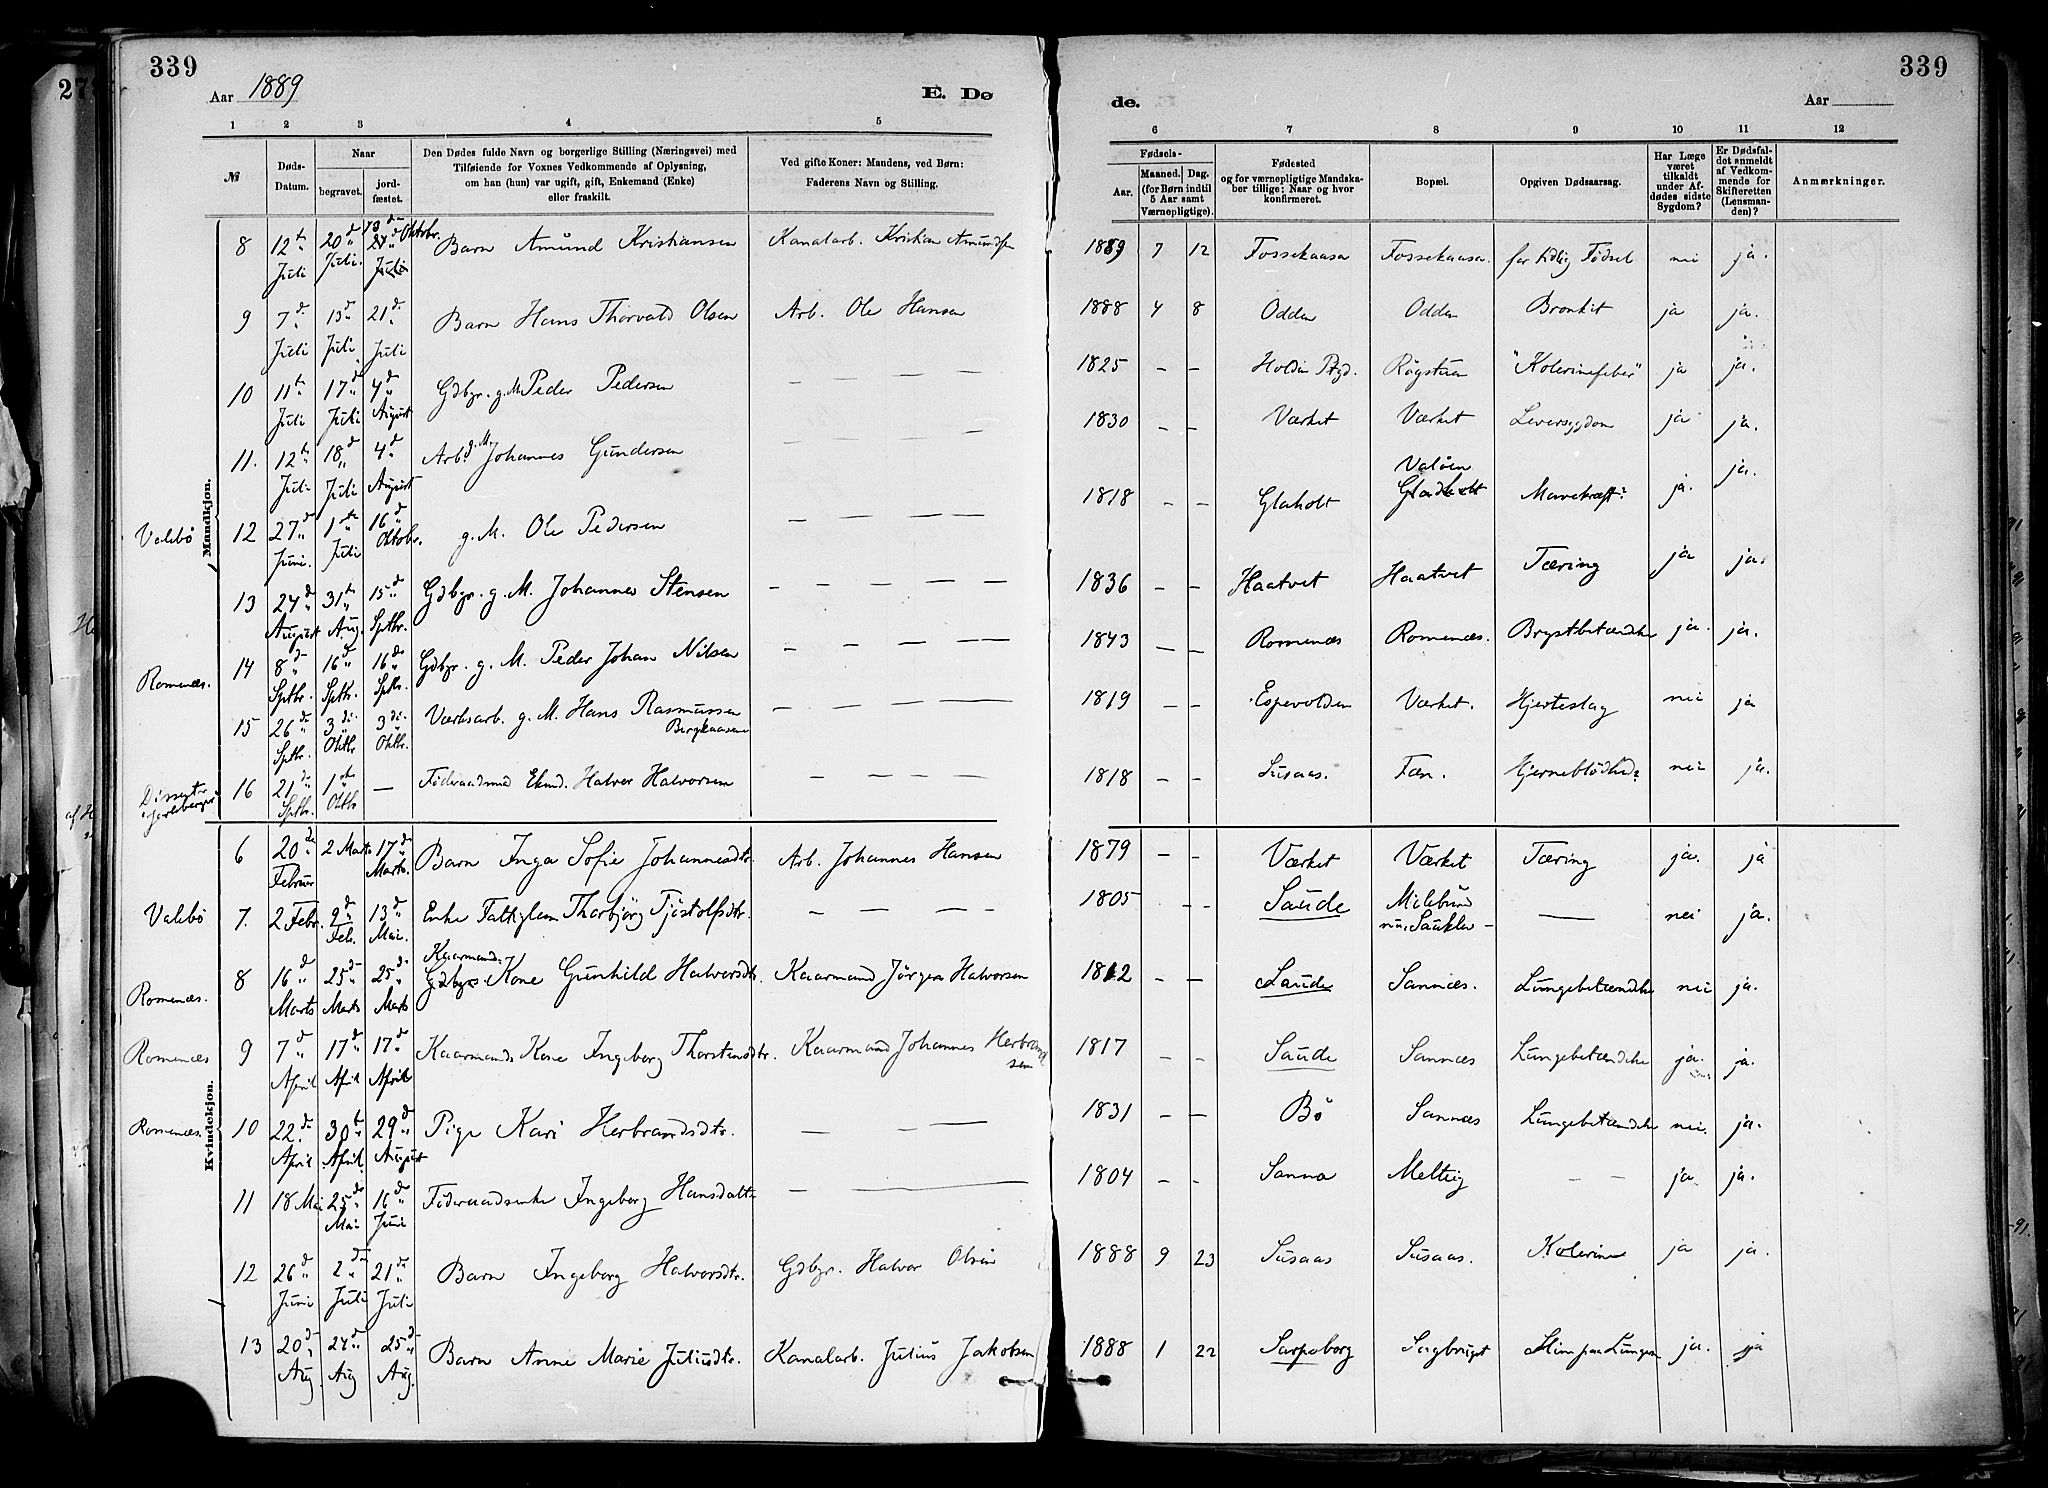 339
339
Aar 1889
E. Dø
de.
Aar
1 2 3 4 5 6 7 8 9 10 11 12
№
Døds-Datum.
Naar
begravet.
jord-fæstet.
Den Dødes fulde Navn og borgerlige Stilling (Næringsvei) med
Tilføiende for Voxnes Vedkommende af Oplysning,
om han (hun) var ugift, gift, Enkemand (Enke)
eller fraskilt.
Ved gifte Koner: Mandens, ved Børn:
Faderens Navn og Stilling.
Fødsels-
Aar.
Maaned. Dag.
(for Børn indtil
5 Aar samt
Værnepligtige).
Fødested
og for værnepligtige Mandska-
ber tillige: Naar og hvor
konfirmeret.
Bopæl.
Opgiven Dødsaarsag.
Har Læge
været
tilkaldt
under Af-
dødes sidste
Sygdom?
Er Dødsfal-
det anmeldt
af Vedkom-
mende for
Skifteretten
(Lensman-
den)?
Anmærkninger.
Mandkjøn.
8 12te Juli 20de Juli 13de Oktobr. Juli Barn Amund Kristiansen Kanalarb. Kristian Amundsen 1889 7 12 Fossekaasa Fossekaasa. for tidlig Fødsel nei ja.
9 7de Juli 13de Juli 21de Juli Barn Hans Thorvald Olsen Arb. Ole Hansen 1888 4 8 Odden Odden Bronkit ja ja.
10 11te Juli 17de Juli 4de August Gdbgr. g. M. Peder Pedersen — — — — 1825 – – Holden Pgd. Rögstaen "Kolerinefeber" ja ja.
11. 12te Juli 18de Juli 4de August Arb. g. M. Johannes Gundersen — — — — 1830 – – Værket Værket Leversygdom ja ja.
Valebö 12 27de Juni. 1ste Juli 16de Oktobr. g. M. Ole Pedersen — — — — 1818 – – Glaholt Valöen Gladholt Mavekræft? ja. ja.
13 24de August 31te Aug. 15de Sptbr. Gdbgr. g. M. Johannes Stensen — — — — 1836 – – Haatvet Haatvet Tæring ja ja.
Romenæs. 14 8de Sptbr. 16de Sptbr. 16de Sptbr. Gdbgr. g. M. Peder Johan Nilsen — — — — 1843 – – Romenæs Romenæs. Brystbetændelse ja. ja.
15 26de Sptbr. 3die Oktbr 3die Oktbr. Værksarb. g. M. Hans Rasmussen Bergkaasen — — — — 1819 – – Espevolden Værket. Hjerteslag nei ja
16 21de Sptbr. 1ste Oktbr. — Föderaadsmd Ekmd. Halvor Halvorsen — — — — 1818 – – Susaas. Fæn. nei ja.
Kvindekjøn.
6 20de Februar 2 Marts 17de Marts. Barn Inga Sofie Johannesdtr. Arb. Johannes Hansen 1879 – – Værket Værket Tæring ja. ja
Valebö 7. 2 Febr. 9de Feb. 13de Mai. Enke Fattiglem Thorbjörg Tjöstolfsdtr. — — — — 1805 – – Saude nu. — nei ja.
Romenæs. 8 16de Marts 25de Marts 25de Marts Kaarmands Gdbgrs Kone Gunhild Halvorsdtr. Kaarmand Jörgen Halvorsen 1812 – – Saude Sannæs. Lungebetændelse nei ja.
Romenæs 9 7de April 17de April 17de April Kaarmands Kone Ingeborg Thorstensdtr. Kaarmand Johannes Herbrandsen 1817 – – Saude Sannæs Lungebetændelse ja. ja.
Romenæs. 10 22de April 30te April. 29de August Pige Kari Herbrandsdtr. — — — 1831 – – Bö Sannæs Lungebetændelse nei. ja.
11 18 Mai 25de Mai 16de Juni Föderaadsenke Ingeborg Hansdatr — — 1804 – – Sanna Melteig – – ja ja.
12 26de Juni 2den Juli 21de Juli Barn Ingeborg Halvorsdtr. Gdbgr. Halvor Olsen 1888 9 23 Susaas Susaas. Kolerine ja ja.
13 20de Aug. 24de Aug 25de Aug. Barn Anne Marie Juliusdtr. Kanalarb. Julius Jakobsen 1888 1 22 Sarpsborg Slim paa Lungen ja. ja